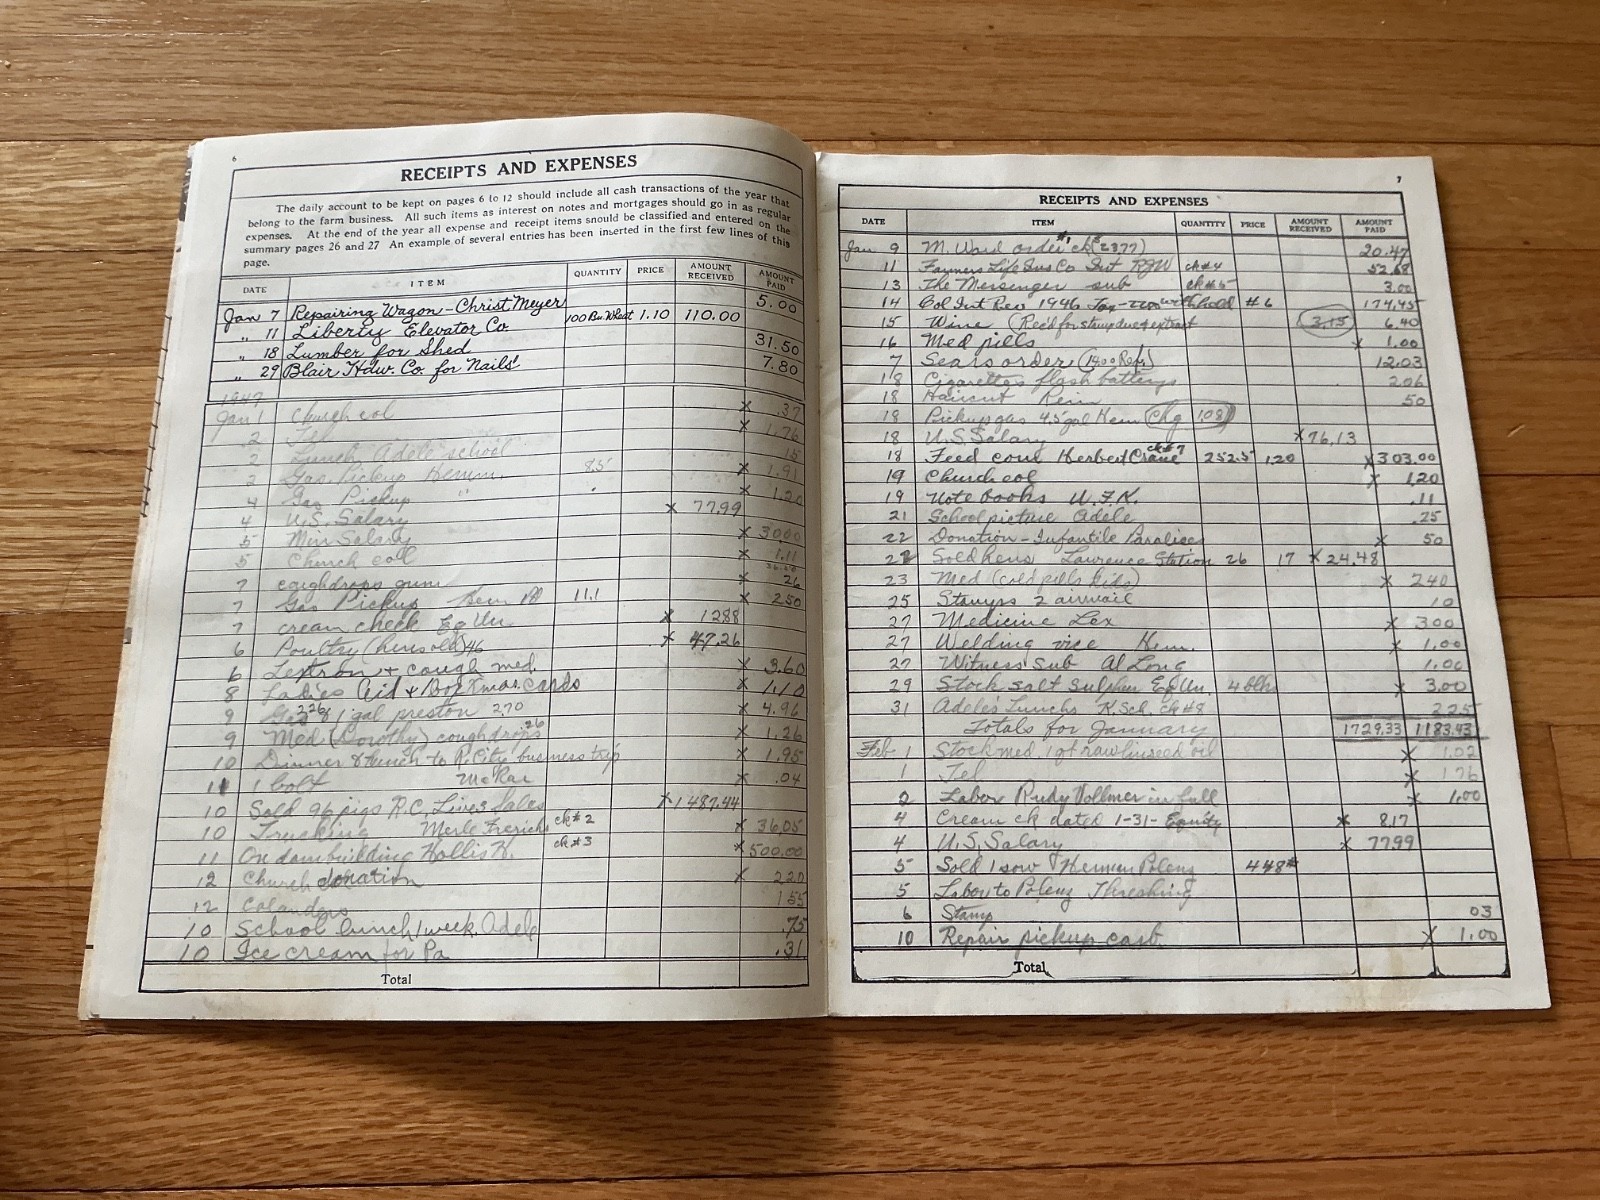 6
RECEIPTS AND EXPENSES
The daily account to be kept on pages 6 to 12 should include all cash transactions of the year that
belong to the farm business. All such items as interest on notes and mortgages should go in as regular
expenses. At the end of the year all expense and receipt items snould be classified and entered on the
summary pages 26 and 27 An example of several entries has been inserted in the first few lines of this
page.
DATE ITEM QUANTITY PRICE AMOUNT RECEIVED AMOUNT PAID
Jan 7 Repairing Wagon - Christ Meyer 5.00
" 11 Liberty Elevator Co. 100 Bu. Wheat 1.10 110.00
" 18 Lumber for Shed 31.50
" 29 Blair Hdw. Co. for Nails 7.80
1947
Jan 1 Church col x .37
2 Tel x 1.76
2 Lunch Adele school 15
3 Gas Pickup Hemm. 8.5 x 1.91
4 Gas Pickup " x 1.20
4 U.S. Salary x 77.99
5 Min Salary x 30.00
5 Church coll x 1.11
7 coughdrops gum x 26
7 Gas Pickup 11.1 x 2.50
7 cream check Eq Un x 1288
6 Poultry (hens sold) 46 x 47.26
6 + cough med. x 3.60
8 Ladies Aid + Box Xmas cards x 1.10
9 Gas 2.26 & 1 gal preston 2.70 x 4.96
9 Med (Dorothy) coughdrops .26 x 1.26
10 Dinner & lunch to R. City business trip x 1.95
11 1 bolt McRae x .04
10 Sold 96 pigs R.C. Lives Sales x 1487.44
10 Trucking Merle Frerichs ck #2 x 36.05
11 On dambuilding Hollis K. ck #3 x 500.00
12 Church donation x 2.20
12 Colanders 155
10 School lunch 1 week Adele .75
10 Ice cream for Pa .31
Total
7
RECEIPTS AND EXPENSES
DATE ITEM QUANTITY PRICE AMOUNT RECEIVED AMOUNT PAID
Jan 9 M. Ward order #1 ck (#2377) 20.47
11 Farmers Life Ins Co Int RJW ck #4 52.68
13 The Messenger sub ck #5 3.00
14 Col Int Rev 1946 Tax - withhold #6 174.45
15 Wine (Rec'd for stamp due & extra) 3.15 6.40
16 Med pills x 1.00
7 Sears order (14.00 Ref.) 12.03
18 Cigarettes flash battery 2.06
18 Haircut 50
18 Pickup gas 4.5 gal Hem (Chg 1.08)
18 U.S. Salary x 76.13
18 Feed corn Herbert Crane ck #7 252.5 1.20 x 303.00
19 Church col x 1.20
19 Note books W.F.K. .11
21 School picture Adele .25
22 Donation - Infantile Paralises x 50
22 Sold hens Lawrence Station 26 17 x 24.48
23 Med (cold pills kids) x 240
25 Stamps 2 airmail 10
27 Medicine Lex x 300
27 Welding vice Hem. x 1.00
27 Witness Sub Al Long 1.00
29 Stock salt sulpher Eq Un. 4 blks x 3.00
31 Adele's Lunchs K. Sch. ck #8 2.25
Totals for January 1729.33 1183.43
Feb 1 Stock med. 1 qt raw linseed oil x 1.02
1 Tel x 1.76
2 Labor Rudy Vollmer in full x 1.00
4 Cream ck dated 1-31- Equity x 8.17
4 U.S. Salary x 77.99
5 Sold 1 sow Herman Polenz 448#
5 Labor to Polenz Threshing
6 Stamp 03
10 Repair pickup carb. x 1.00
Total